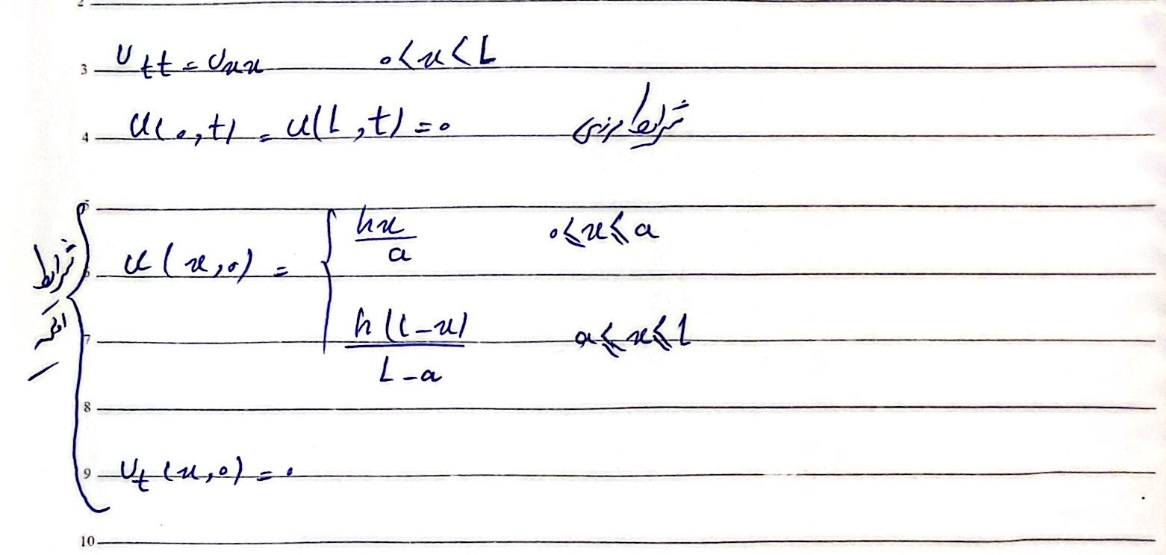 2
3 U_tt = U_xx    0<x<L
4 u(0,t) = u(L,t) = 0    شرایط مرزی
5
6 شرایط اولیه u(x,0) = { hx/a    0≤x≤a
7 h(L-x)/L-a    a≤x≤L
8
9 U_t(x,0) = 0
10